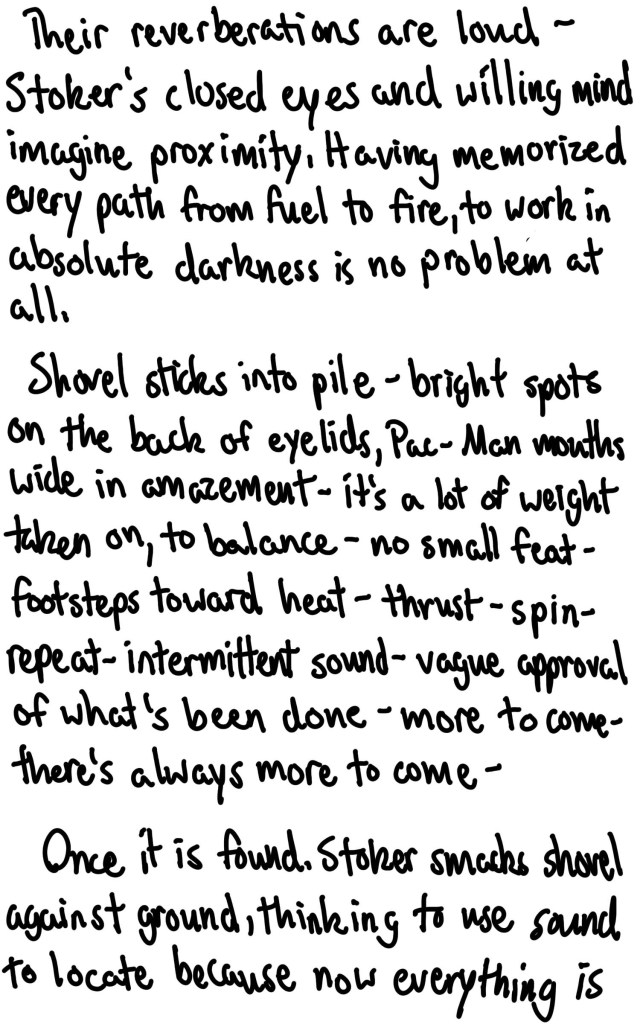 Their reverberations are loud -
Stoker's closed eyes and willing mind
imagine proximity. Having memorized
every path from fuel to fire, to work in
absolute darkness is no problem at
all.
Shovel sticks into pile - bright spots
on the back of eyelids, Pac-Man mouths
wide in amazement - it's a lot of weight
taken on, to balance - no small feat -
footsteps toward heat - thrust - spin -
repeat - intermittent sound - vague approval
of what's been done - more to come -
there's always more to come -
Once it is found. Stoker smacks shovel
against ground, thinking to use sound
to locate because now everything is